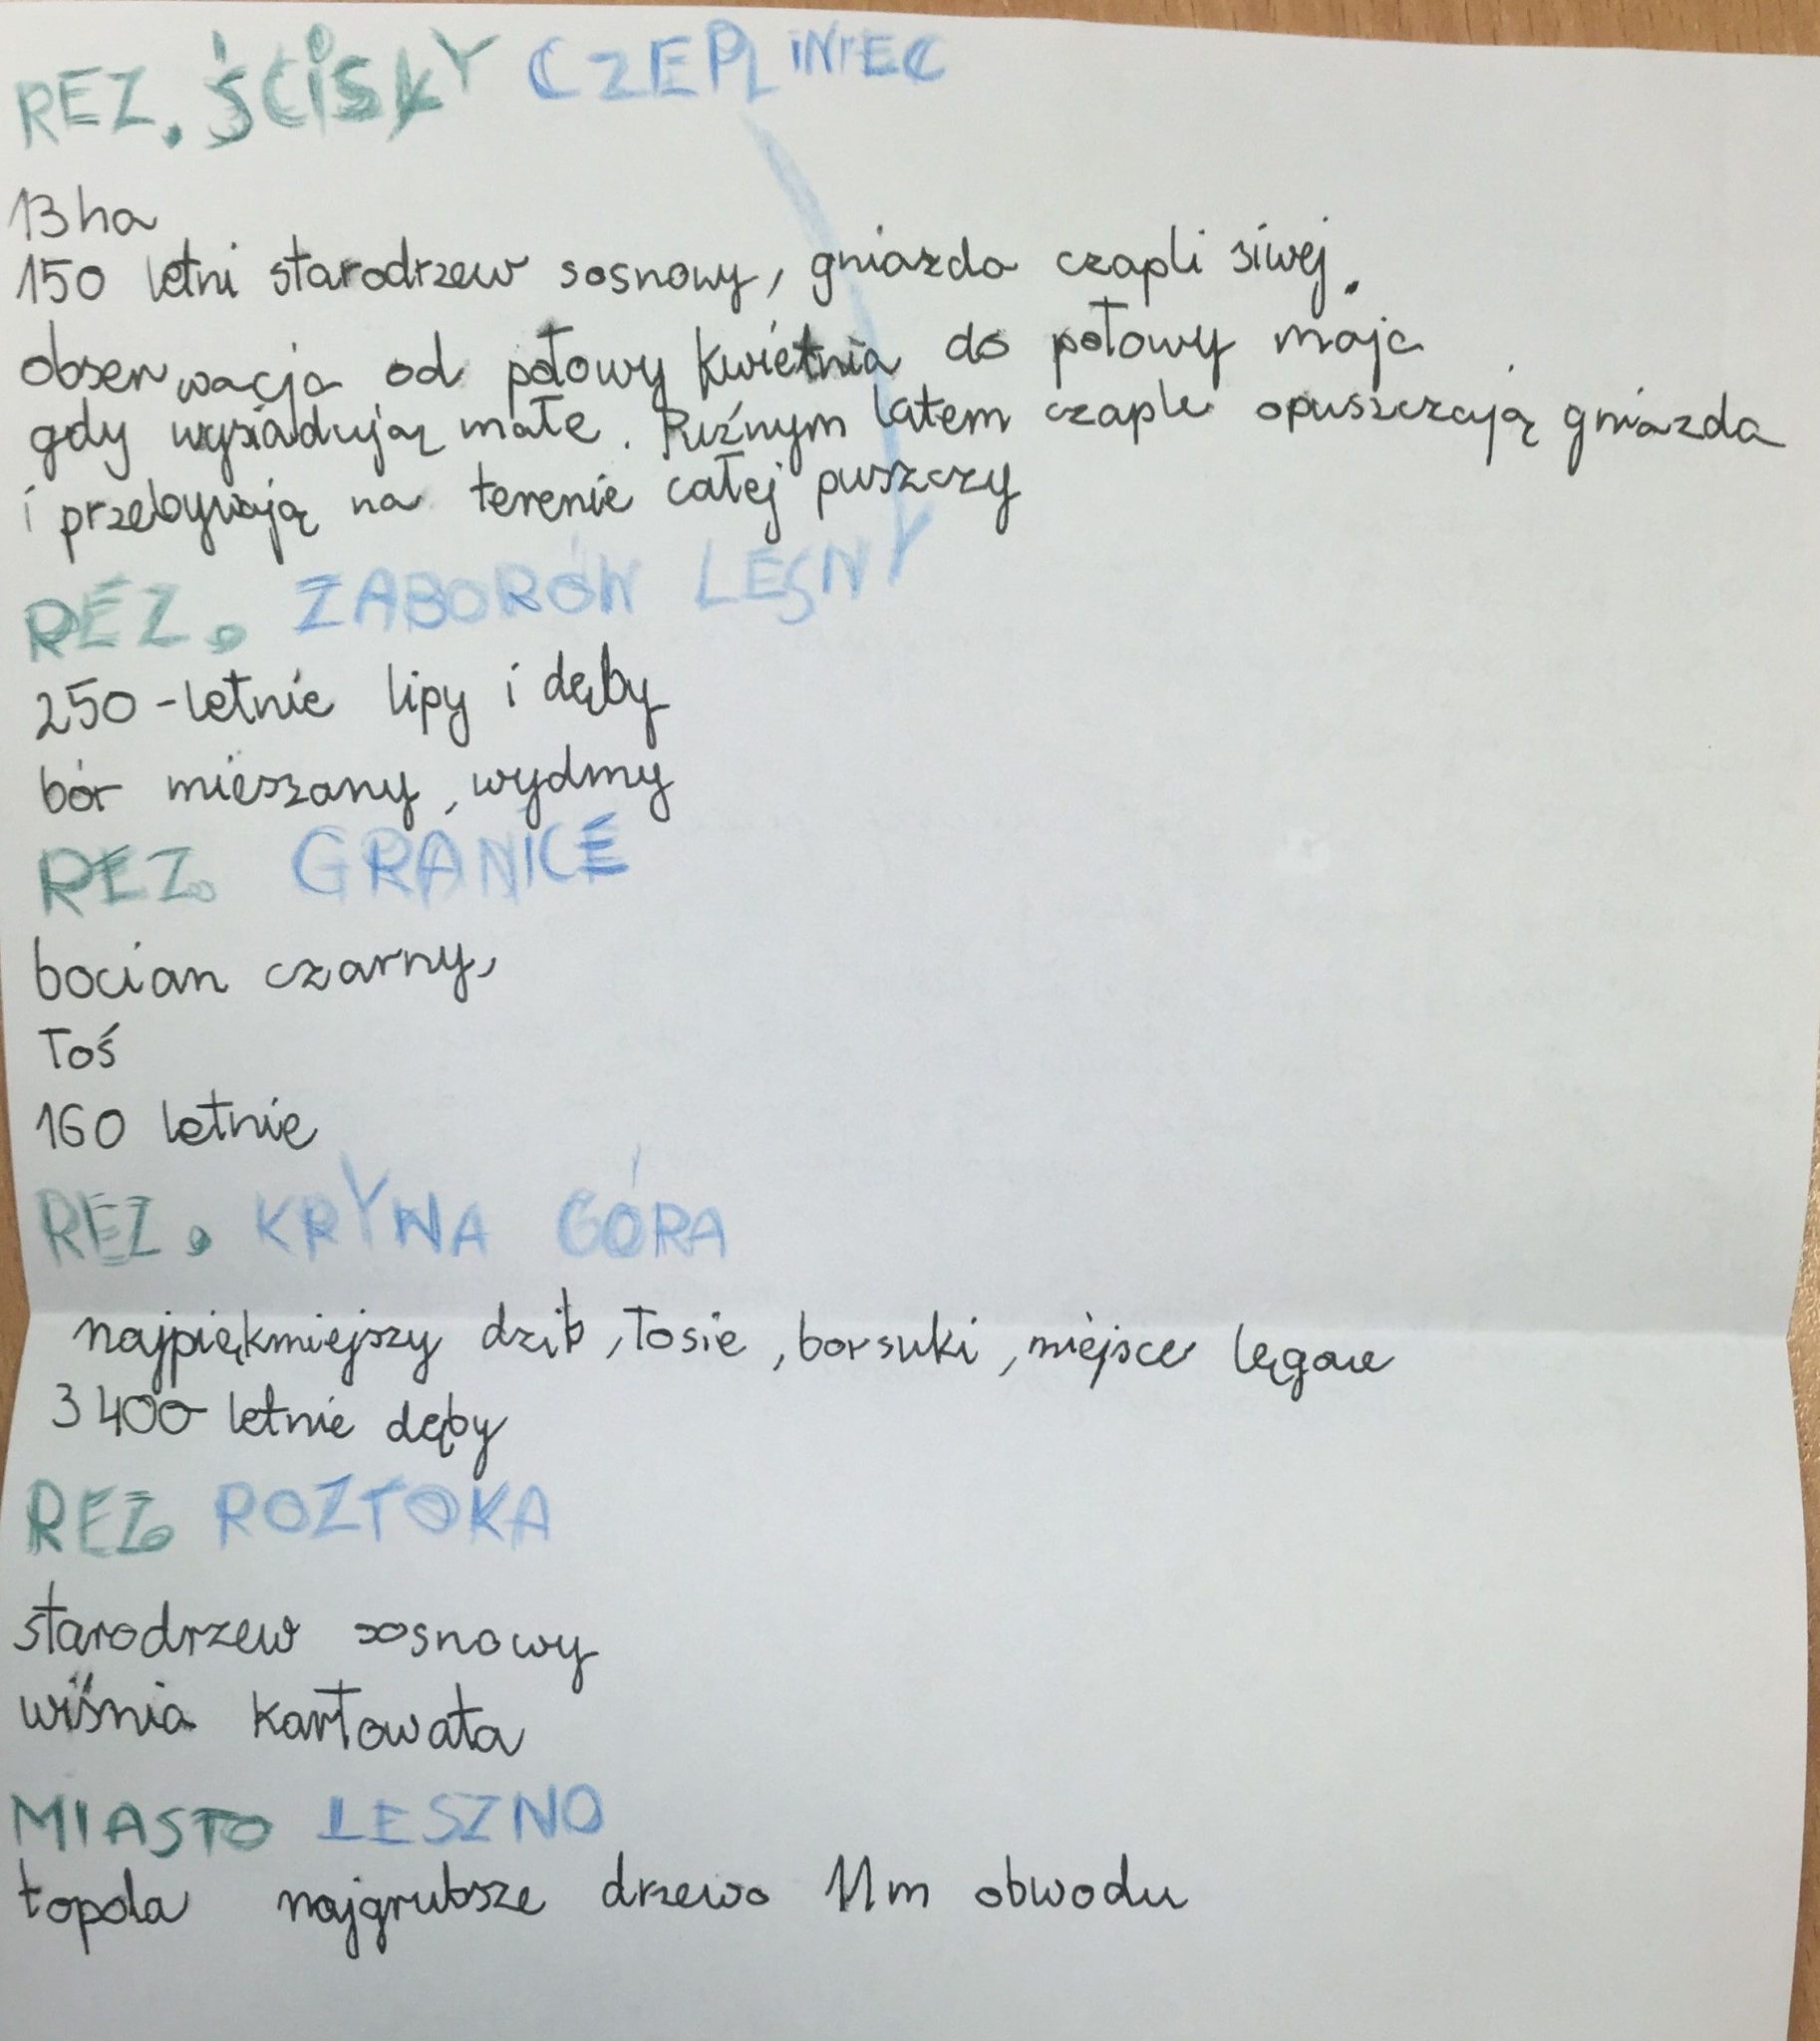 REZ. ŚCISKY CZEPLINIEC
13 ha
150 letni starodrzew sosnowy, gniazda czapli siwej.
obserwacja od połowy kwietnia do połowy maja
gdy wysiadują małe. Puźnym latem czaple opuszczają gniazda
i przebywają na terenie całej puszczy
REZ. ZABORÓW LEŚNY
250-letnie lipy i dęby
bór mieszany, wydmy
REZ. GRANICE
bocian czarny,
Łoś
160 letnie
REZ. KRYWA GÓRA
najpiękmiejszy dzik, łosie, borsuki, miejsce lęgowe
3 400 letnie dęby
REZ. ROZTOKA
starodrzew sosnowy
wiśnia karłowata
MIASTO LESZNO
topola najgrubsze drzewo 11m obwodu